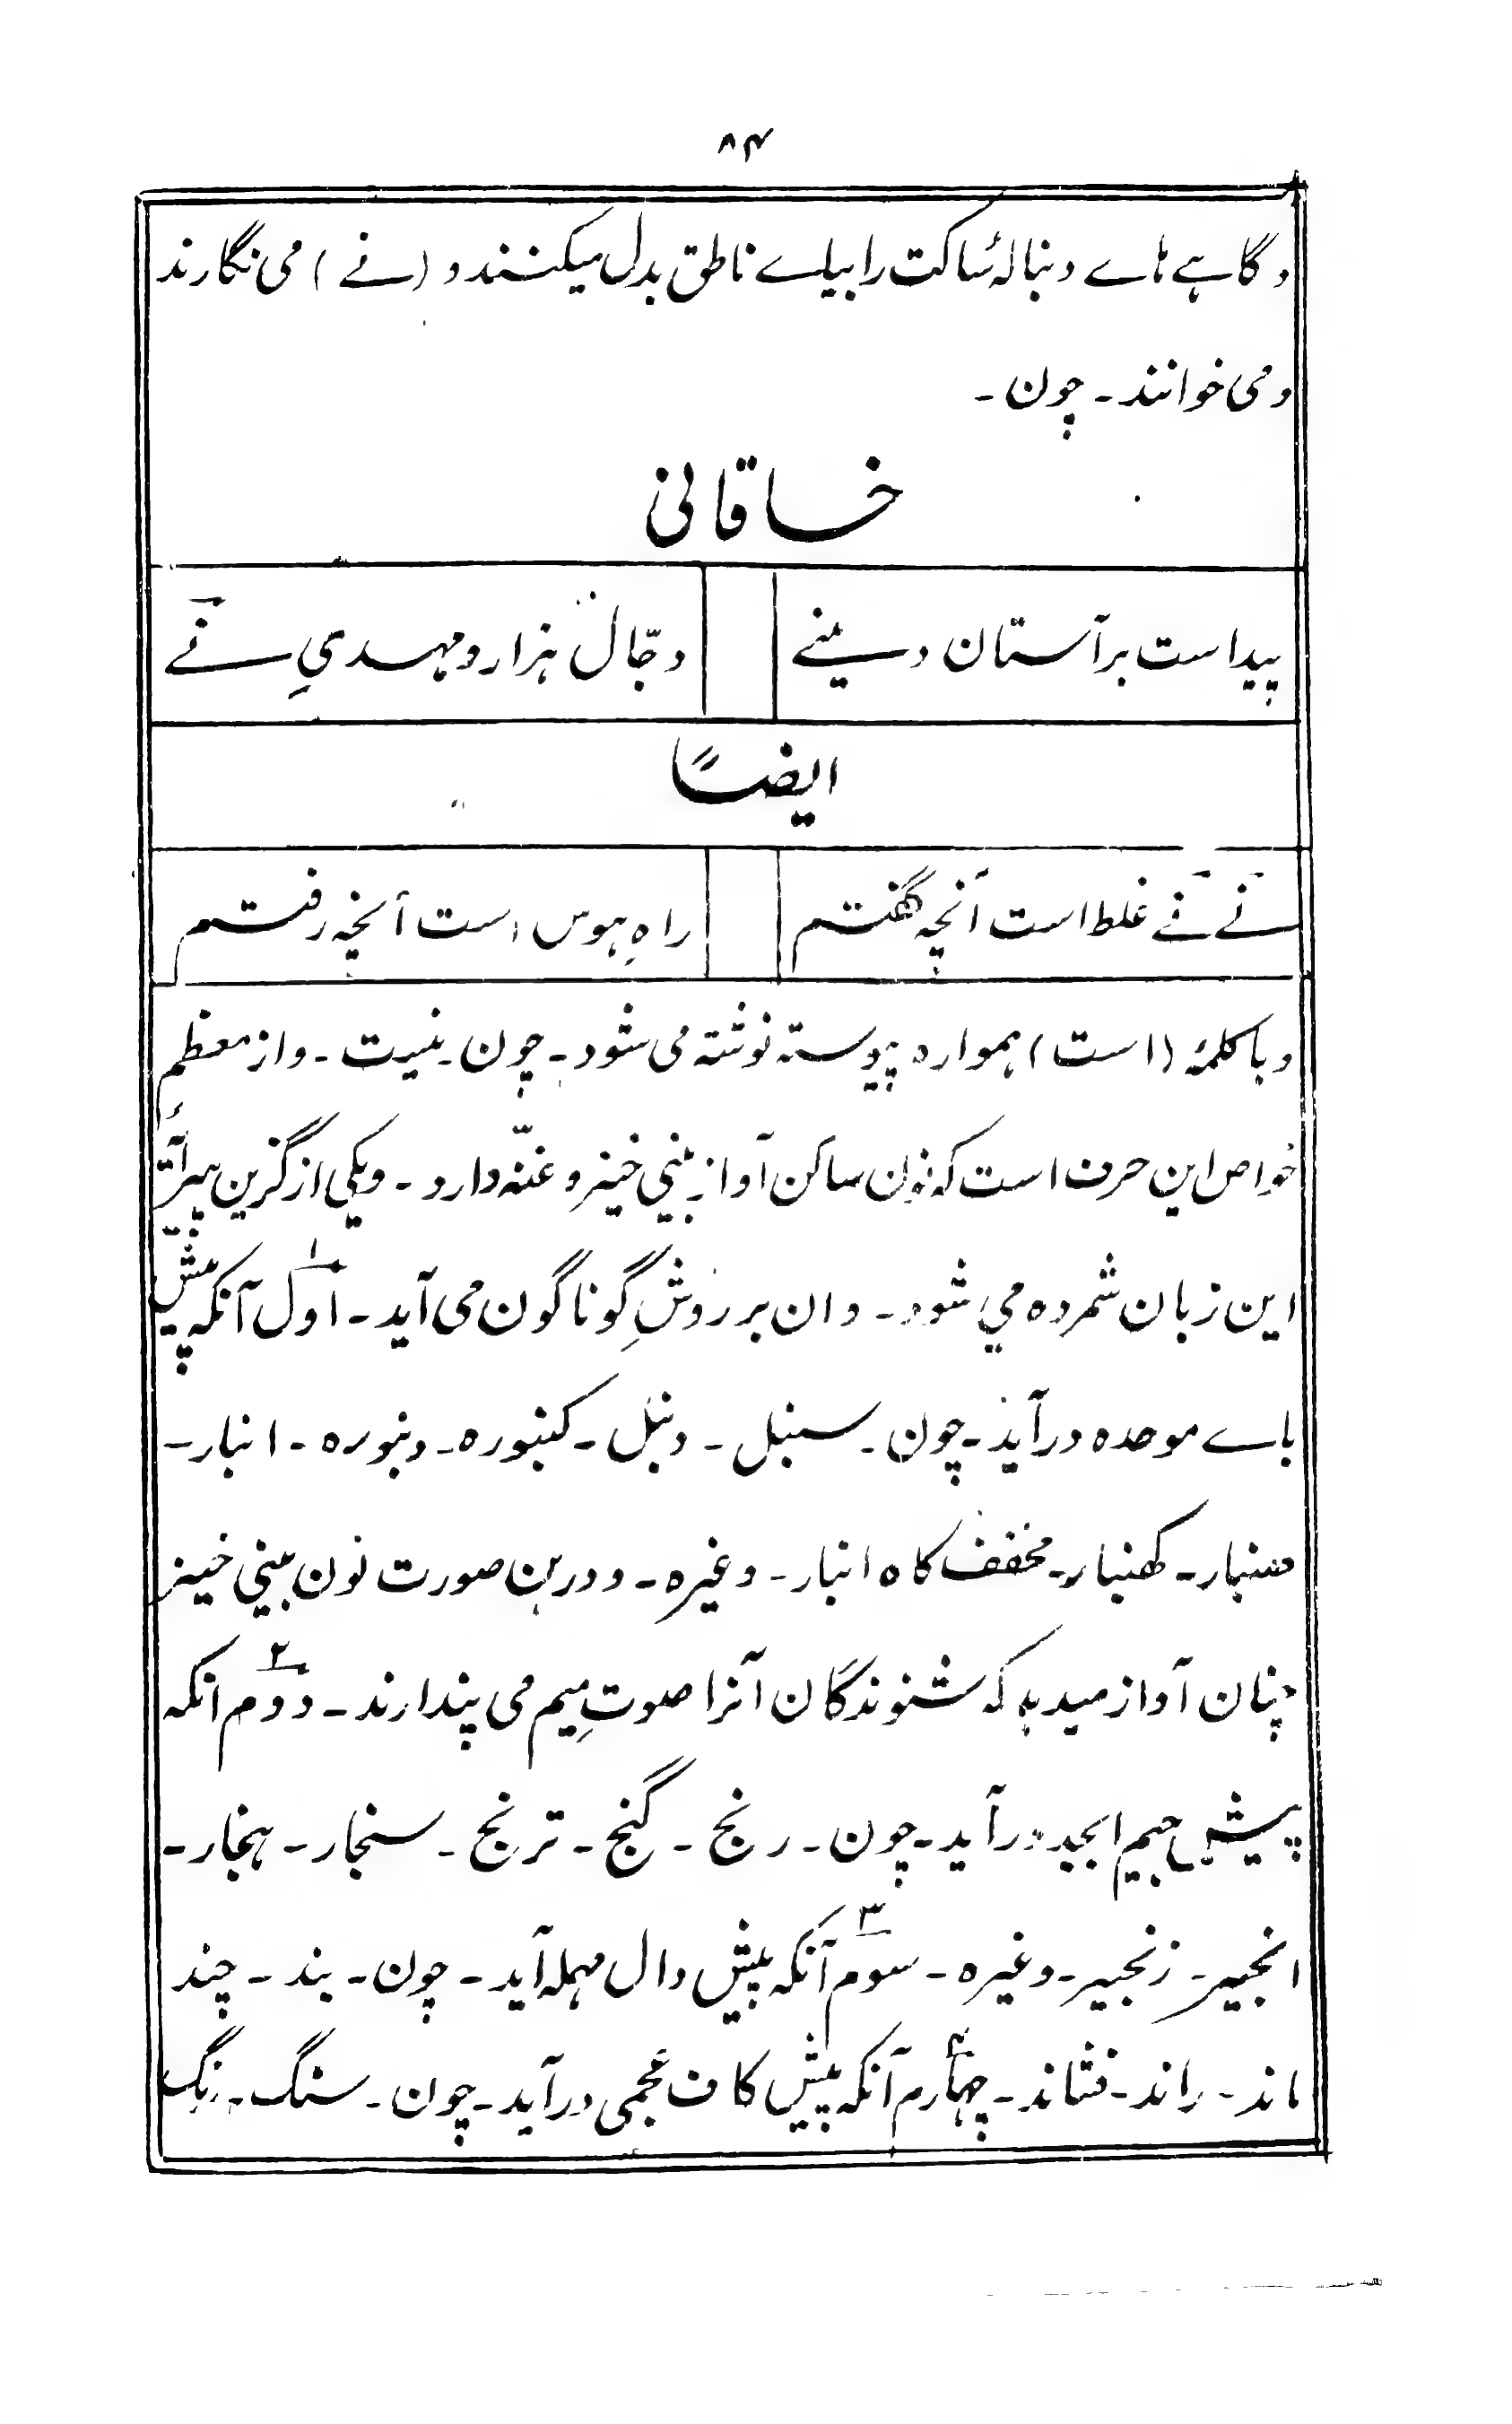 ۸۴
و گاہے ہاے دنبالۂ ساکت را بیاے ناطق بدل میکنند و (نے) می نگارند
و می خوانند۔ چون۔
خاقانی
پیداست بر آستان دینے
دجّال ہزار و مہدیِ نے
ایضاً
نے نے غلط است آنچہ گفتم
راہِ ہوس است آنچہ رفتم
و با کلمۂ (است) ہموارہ پیوستہ نوشتہ می شود۔ چون۔ نیست۔ و از معظم
خواص این حرف است کہ نون ساکن آواز بینی خیز و غنّہ دارد۔ و یکی از گزین
این زبان شمردہ می شود۔ و ان بر روشِ گوناگون می آید۔ اول آنکہ پیش
باے موحدہ در آید۔ چون۔ سنبل۔ دنبل۔ کنبورہ۔ دنبورہ۔ انبار۔
سنبار۔ کھنبار۔ مخفف کاہ انبار۔ وغیرہ۔ و درین صورت نون بینی خیز
چنان آواز میدہد کہ شنوندگان آنرا صوتِ میم می پندارند۔ دوم انکہ
پیش جیم ابجد در آید۔ چون۔ رنج۔ گنج۔ ترنج۔ سنجار۔ ہنجار۔
انجیر۔ زنجیر۔ وغیرہ۔ سوم آنکہ پیش دال مہملہ آید۔ چون۔ بند۔ چند
ماند۔ راند۔ فشاند۔ چہارم آنکہ پیش کاف عجمی در آید۔ چون۔ سنگ۔ رنگ